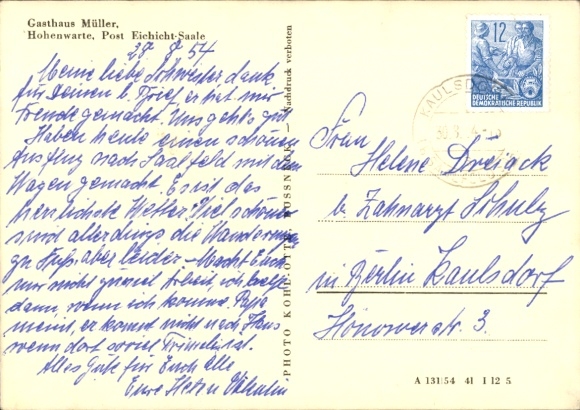 Gasthaus Müller,
Hohenwarte, Post Eichicht-Saale
54
Meine liebe Schwester dank
für Deinen l. Brief er hat mir
Freude gemacht. Uns geht's gut
Haben heute einen schönen
Ausflug nach Saalfeld mit dem
Wagen gemacht. Es ist das
herrlichste Wetter. Viel schöner
sind allerdings die Wanderungen
zu Fuß, aber leider – Macht Euch
nur nicht zuviel Arbeit, ich helfe
dann, wenn ich komme. Papa
meint, er kommt nicht nach Haus
wenn dort soviel ist.
Alles Gute für Euch alle
Eure
PHOTO KOHL-OTTE, PÖSSNECK — Nachdruck verboten
12
DEUTSCHE
DEMOKRATISCHE REPUBLIK
KAULSDO
Frau
Helene Dreiack
b. Zahnarzt Schulz
in Berlin Kaulsdorf
Hönowerstr. 3.
A 131/54 41 I 12 5